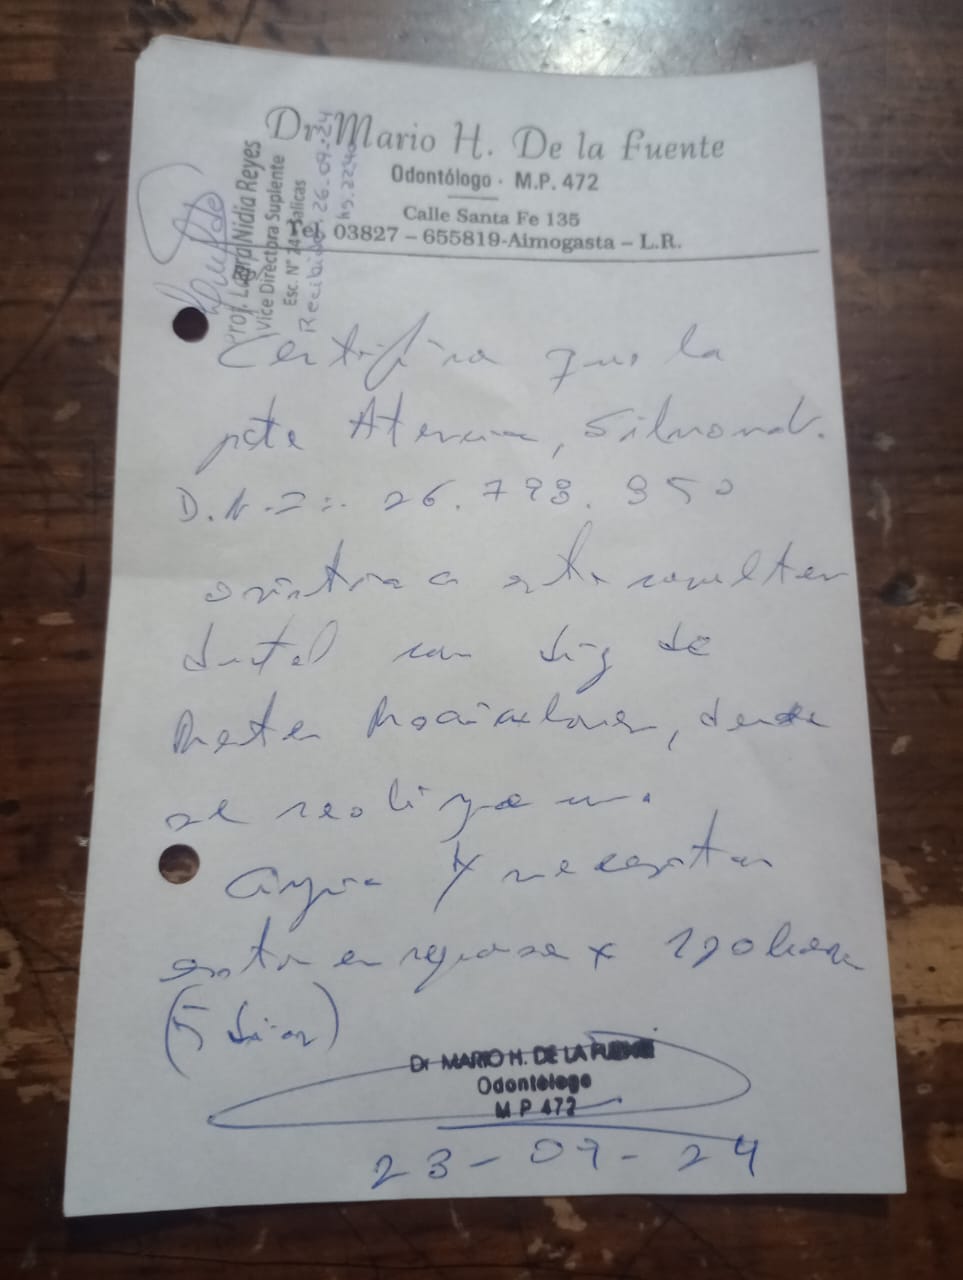 Dr. Mario H. De la Fuente
Odontólogo - M.P. 472
Calle Santa Fe 135
Tel. 03827 – 655819-Aimogasta – L.R.
Prof. Laura Nidia Reyes
Vice Directora Suplente
Esc. N° 241
Recibido 26-09-24
Certifica que la
pcte Atencia,
D.N.I:. 26.793.950
asistió a este consultorio
dental con diag de
donde
se realiza un.
y necesitar
estar en reposo x 120 horas
(5 días)
Dr MARIO H. DE LA FUENTE
Odontólogo
M P 472
23-09-24